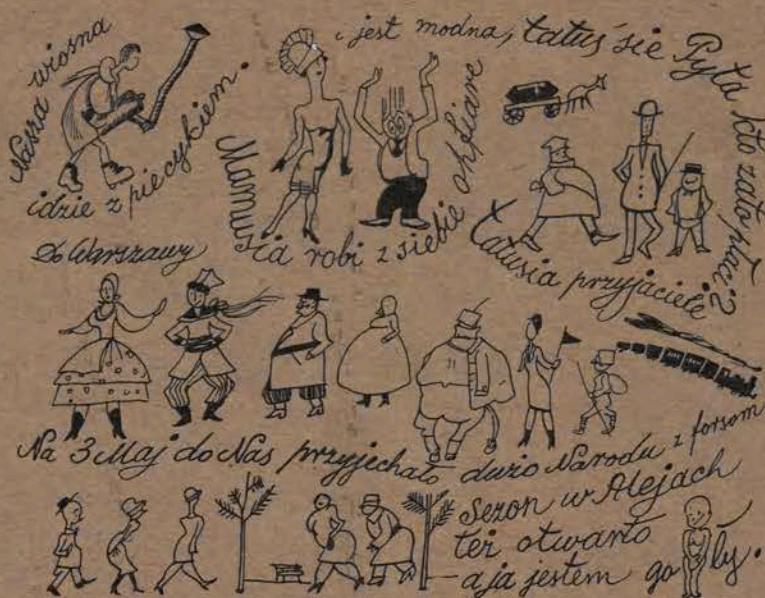 Nasza wiosna
idzie z piecykiem.
Mamusia robi z siebie okfiarę
i jest modna, tatuś się Pyta kto zato płaci?
Tatusia przyjaciele
Do Warszawy
Na 3 Maj do Nas przyjechało dużo Narodu z forsom
Sezon w Alejach
też otwarto
a ja jestem goły.